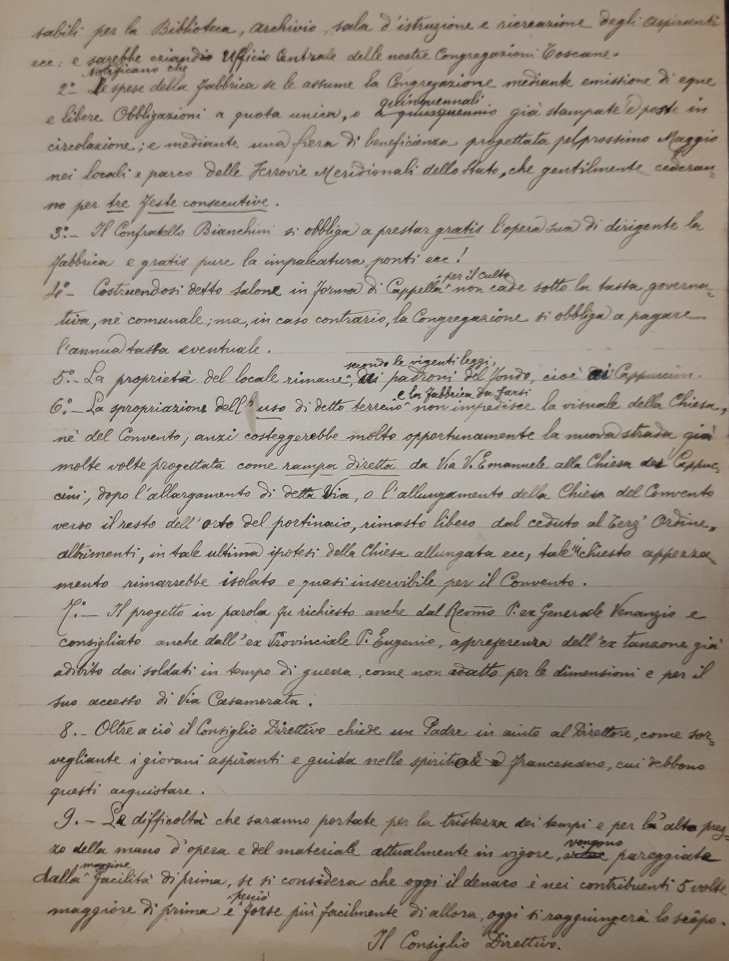 sabili per la Biblioteca, archivio, sala d'istruzione e ricreazione degli Aspiranti
ecc: e sarebbe eziandio Ufficio Centrale delle nostre Congregazioni Toscane.
notificano che
2º Le spese della Fabbrica se le assume la Congregazione mediante emissione di eque
quinquennali
e libere Obbligazioni a quota unica, o a quinquennio già stampate e poste in
circolazione; e mediante una fiera di beneficienza progettata pel prossimo Maggio
nei locali e parco delle Ferrovie Meridionali dello Stato, che gentilmente cederan-
no per tre Feste consecutive.
3º.- Il Confratello Bianchini si obbliga a prestar gratis l'opera sua di dirigente la
Fabbrica e gratis pure la impalcatura, ponti ecc!
per il culto
4º- Costruendosi detto salone in forma di Cappella non cade sotto la tassa governa-
tiva, nè comunale; ma, in caso contrario, la Congregazione si obbliga a pagare
l'annua tassa eventuale.
secondo le vigenti leggi,
5º- La proprietà del locale rimane, ai padroni del fondo, cioè ai Cappuccini.
e la fabbrica da farsi
6º- La spropriazione dell'uso di detto terreno non impedisce la visuale della Chiesa,
nè del Convento, anzi costeggerebbe molto opportunamente la nuova strada già
molte volte progettata come rampa diretta da Via V. Emanuele alla Chiesa dei Cappuc-
cini, dopo l'allargamento di detta Via, o l'allungamento della Chiesa del Convento
verso il resto dell'orto del portinaio, rimasto libero dal ceduto al Terz'Ordine,
altrimenti, in tale ultima ipotesi della Chiesa allungata ecc, tale richiesto appezza-
mento rimarrebbe isolato e quasi inservibile per il Convento.
7º- Il progetto in parola fu richiesto anche dal Revmo P. ex Generale Venanzio e
consigliato anche dall'ex Provinciale P. Eugenio, a preferenza dell'ex stanzone già
adibito dai soldati in tempo di guerra, come non adatto per le dimensioni e per il
suo accesso di Via Casamorata.
8.- Oltre a ciò il Consiglio Direttivo chiede un Padre in aiuto al Direttore, come sor-
vegliante i giovani aspiranti e guida nello spirito Francescano, cui debbono
questi acquistare.
9.- Le difficoltà che saranno portate per la tristezza dei tempi e per l'alto prez-
vengono
zo della mano d'opera e del materiale attualmente in vigore, pareggiate
maggiore
dalla facilità di prima, se si considera che oggi il denaro è nei contribuenti 5 volte
perciò
maggiore di prima e forse più facilmente di allora, oggi si raggiungerà lo scopo.
Il Consiglio Direttivo.